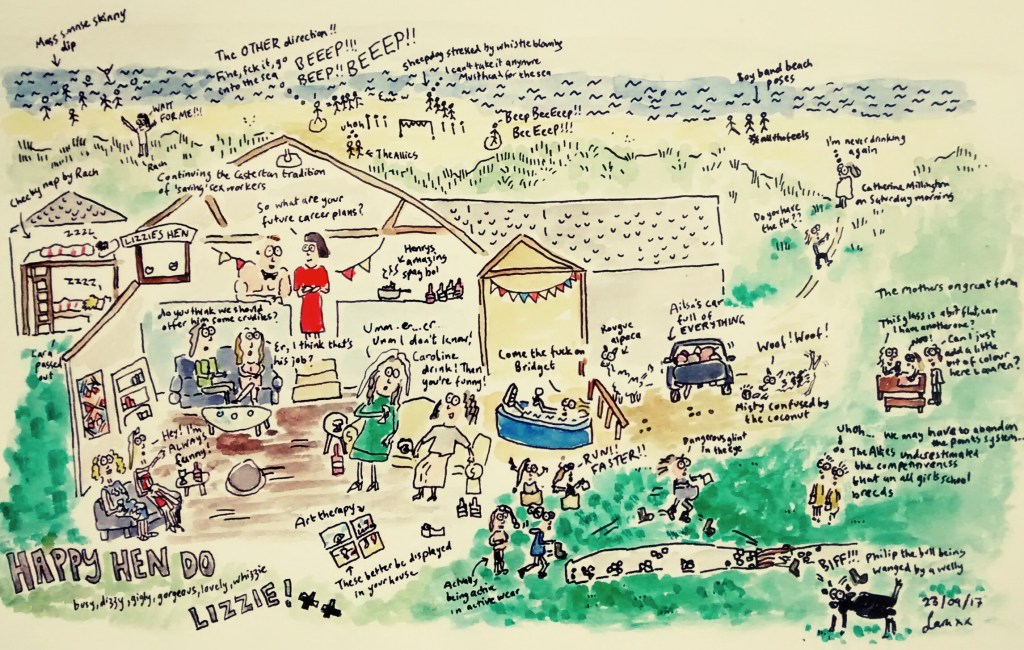 Mass sunrise skinny
dip
The OTHER direction!!
Fine, fck it, go
into the sea
BEEEP!!!
BEEP!! BEEEP!!
Sheepdog stressed by whistle blowing
I can't take it anymore
Must head for the sea
Boy band beach
poses
WAIT
FOR ME!!!
Rach
uhoh
The Allies
Beep BeeEeep!!
BeeEeep!!!
#allthefeels
I'm never drinking
again
Catherine Millington
on Saturday morning
Do you have
the fiv??
Cheeky nap by Rach
Continuing the Casterton tradition
of 'saving' sex workers
ZZZZ
ZZZZ
Cara
passed
out
LIZZIES HEN
So what are your
future career plans?
Henrys
amazing
spag bol
do you think we should
offer him some crudies?
Er, I think that's
his job?
Umm..er...er..
Umm I don't know,
Caroline
drink! Then
you're funny!
Come the fuck on
Bridget
Rougue
alpaca
Ailsa's car
full of
EVERYTHING
Woof! Woof!
Misty confused by
the coconut
The Mothers on great form
This glass is a bit flat, can
I have another one?
NO!
Can I just
add a little
bit of colour
here Lauren?
Hey! I'm
ALWAYS
funny!
RUN!!
FASTER!!
Dangerous glint
in the eye
Uhoh... we may have to abandon
the points system...
The Alkes underestimated
the competitiveness
that an all girls school
breeds
Art therapy
These better be displayed
in your house
Actually
being active
in active wear
BIFF!!!
Philip the bull being
wanged by a welly
HAPPY HEN DO
LIZZIE! xx
busy, dizzy, gigly, gorgeous, lovely, whizzie
23/09/17
Lara xx